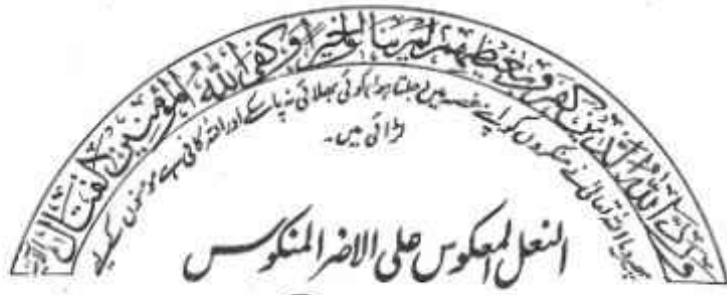 ورد الله الذين كفروا بغيظهم لم ينالوا خيرا وكفى الله المؤمنين القتال
پھیر دیا اللہ تعالیٰ نے منکروں کو اپنے غصہ میں جلتا ہوا، کوئی بھلائی نہ پا سکے اور اللہ کافی ہے مومنوں کے لیے
لڑائی میں۔
النعل المعکوس علی الاضر المنکوس